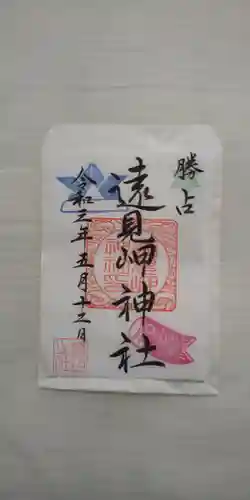 勝占
遠見岬神社
令和三年五月十二日